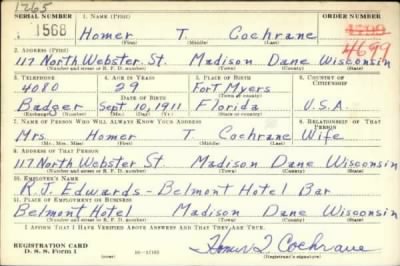 1265
SERIAL NUMBER 1. NAME (Print) ORDER NUMBER
1568 Homer T. Cochrane 1799
(First) (Middle) (Last) 4699
2. ADDRESS (Print)
117 North Webster St. Madison Dane Wisconsin
(Number and street or R. F. D. number) (Town) (County) (State)
3. TELEPHONE 4. AGE IN YEARS 5. PLACE OF BIRTH 6. COUNTRY OF CITIZENSHIP
4080 29 Fort Myers
DATE OF BIRTH (Town or county)
Badger Sept 10, 1911 Florida U.S.A.
(Exchange) (Mo.) (Day) (Yr.) (State or country)
7. NAME OF PERSON WHO WILL ALWAYS KNOW YOUR ADDRESS 8. RELATIONSHIP OF THAT PERSON
Mrs. Homer T Cochrane Wife
(Mr., Mrs., Miss) (First) (Middle) (Last)
9. ADDRESS OF THAT PERSON
117 North Webster St Madison Dane Wisconsin
(Number and street or R. F. D. number) (Town) (County) (State)
10. EMPLOYER'S NAME
R.J. Edwards - Belmont Hotel Bar
11. PLACE OF EMPLOYMENT OR BUSINESS
Belmont Hotel Madison Dane Wisconsin
(Number and street or R. F. D. number) (Town) (County) (State)
I AFFIRM THAT I HAVE VERIFIED ABOVE ANSWERS AND THAT THEY ARE TRUE.
REGISTRATION CARD
D. S. S. Form 1 Homer T Cochrane
(Registrant's signature)